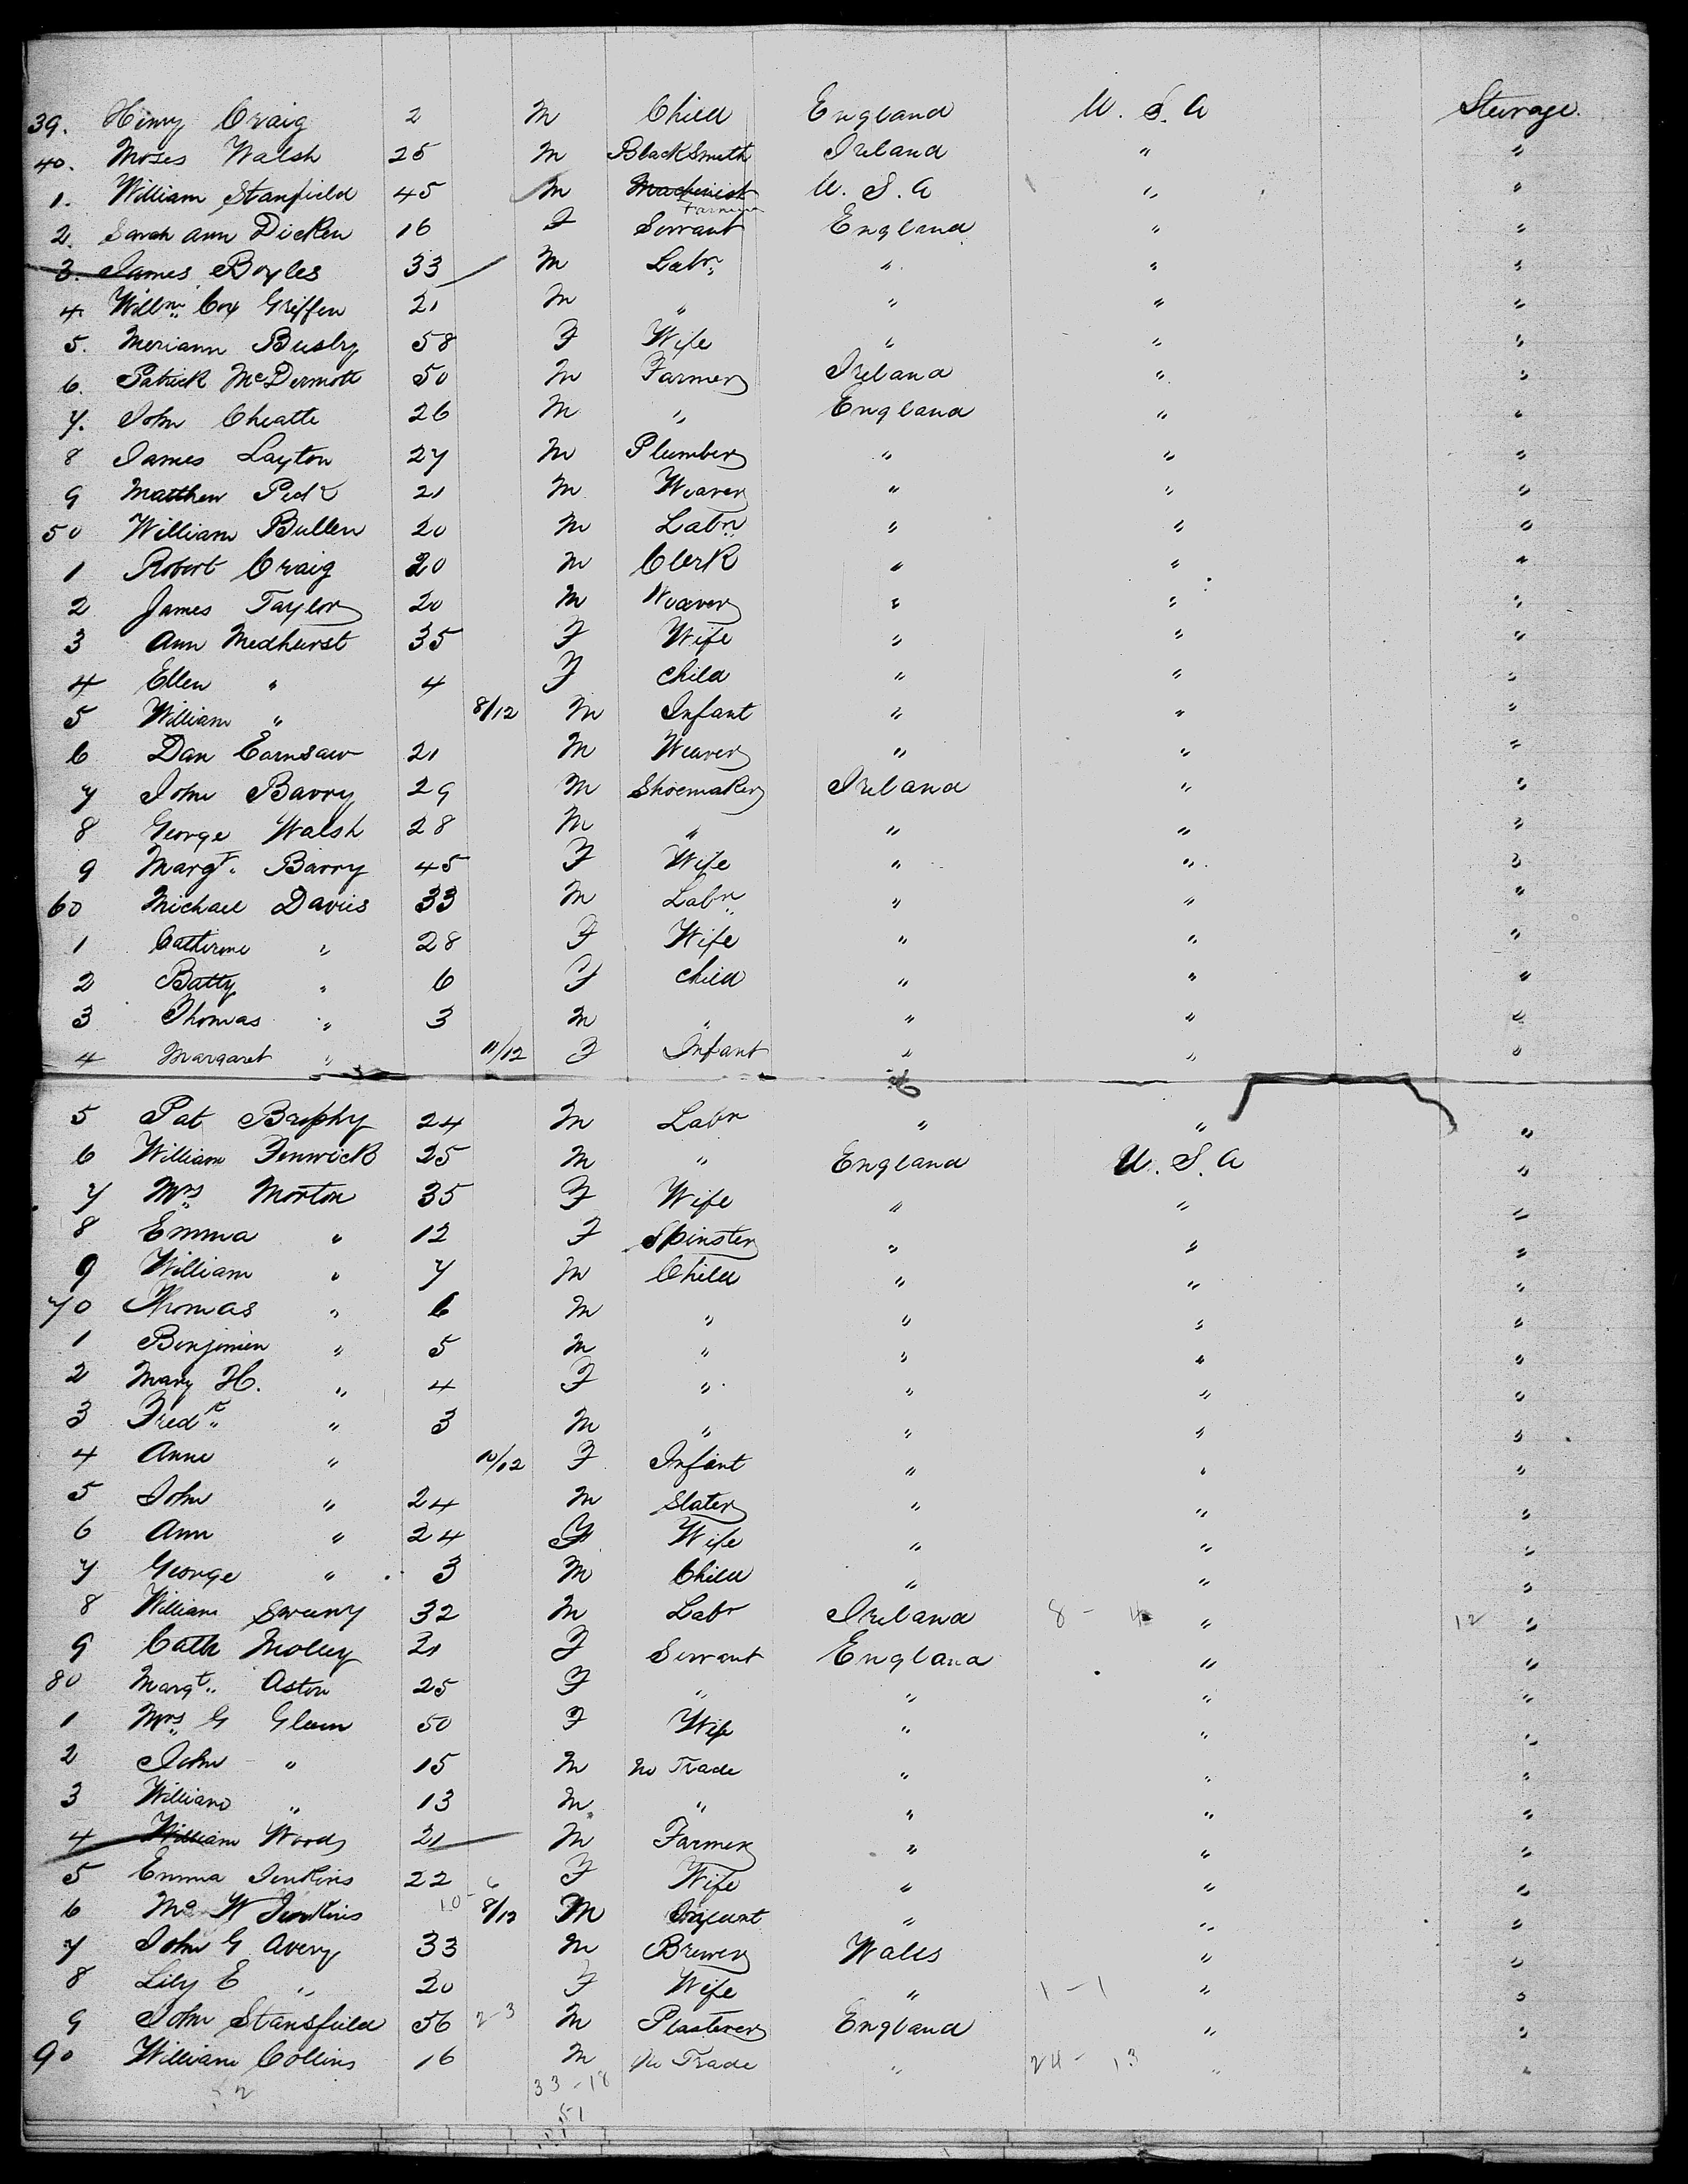 39. Henry Craig 2 M Child England U. S. A Steerage.
40. Moses Walsh 25 M BlackSmith Ireland " "
1. William Stanfield 45 M Machinist U. S. A " "
Farmer
2. Sarah Ann Dicken 16 F Servant England " "
3. James Boyles 33 M Labr " " "
4. Willm Cox Griffen 21 M " " " "
5. Meriann Busby 58 F Wife " " "
6. Patrick McDermott 50 M Farmer Ireland " "
7. John Cheatte 26 M " England " "
8 James Layton 27 M Plumber " " "
9 Matthew 21 M Weaver " " "
50 William Bullen 20 M Labr " " "
1 Robert Craig 20 M Clerk " " "
2 James Taylor 20 M Weaver " " "
3 Ann Medhurst 35 F Wife " " "
4 Ellen " 4 F Child " " "
5 William " 8/12 M Infant " " "
6 Dan Earnsaw 21 M Weaver " " "
7 John Barry 29 M Shoemaker Ireland " "
8 George Walsh 28 M " " " "
9 Margt. Barry 45 F Wife " " "
60 Michael Davies 33 M Labr " " "
1 Catherine " 28 F Wife " " "
2 Batty " 6 F Child " " "
3 Thomas " 3 M " " " "
4 Margaret " 11/12 F Infant " " "
5 Pat Brophy 24 M Labr " " "
6 William Fenwick 25 M " England U. S. A "
7 Mrs Morton 35 F Wife " " "
8 Emma " 12 F Spinster " " "
9 William " 7 M Child " " "
70 Thomas " 6 M " " " "
1 Benjimen " 5 M " " " "
2 Mary H. " 4 F " " " "
3 Fredk " 3 M " " " "
4 Anne " 10/12 F Infant " " "
5 John " 24 M Slater " " "
6 Ann " 24 F Wife " " "
7 George " 3 M Child " " "
8 William Sweeny 32 M Labr Ireland 8 - 4 " 12 "
9 Cath Molley 21 F Servant England " "
80 Margt. Aston 25 F " " " "
1 Mrs G 50 F Wife " " "
2 John " 15 M No Trade " " "
3 William " 13 M " " " "
4 William Woods 21 M Farmer " " "
5 Emma Jenkins 22 6 F Wife " " "
6 W Jenkins 10 8/12 M Infant " " "
7 John G Avery 33 M Brewer Wales " "
8 Lily E " 20 F Wife " 1 - 1 " "
9 John Stansfield 56 2 3 M Plasterer England " "
90 William Collins 16 M No Trade " 24 - 13 " "
33 - 18
51